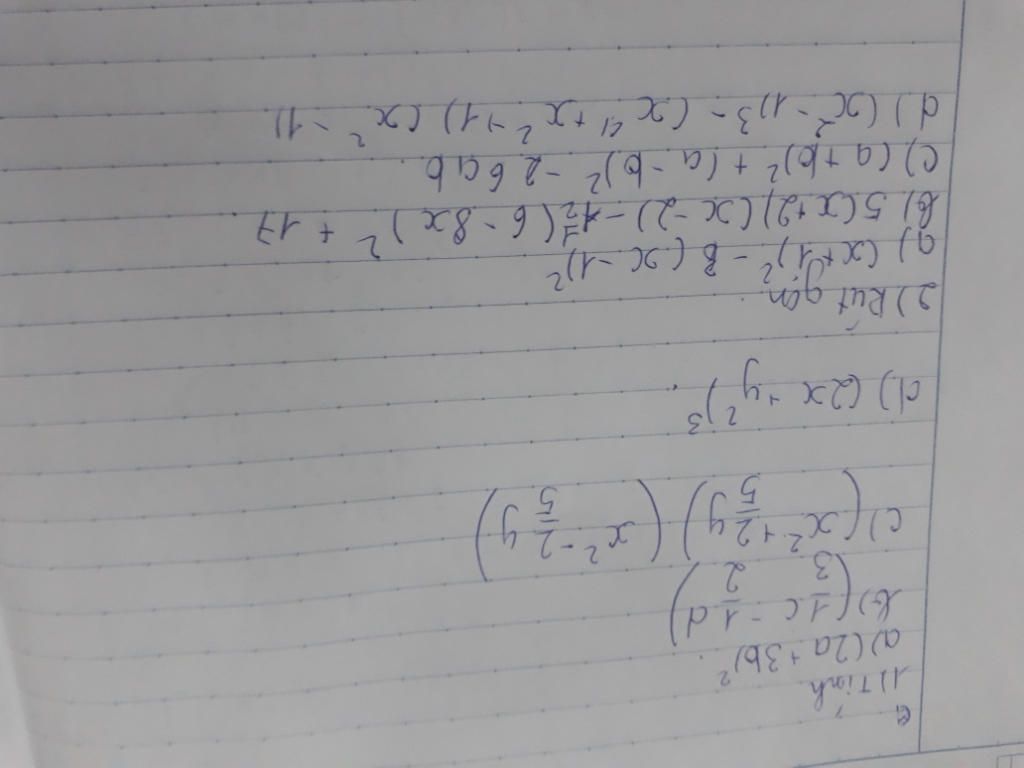 1) Tính
a) (2a + 3b)²
b) (1/3 c - 1/2 d)
c) (x² + 2/5 y) (x² - 2/5 y)
d) (2x + y²)³
2) Rút gọn
a) (x + 1)² - 3(x - 1)²
b) 5(x+2)(x-2) - 1/2 (6 - 8x)² + 17
c) (a + b)² + (a - b)² - 26ab
d) (x² - 1)³ - (x⁴ + x² + 1) (x² - 1)